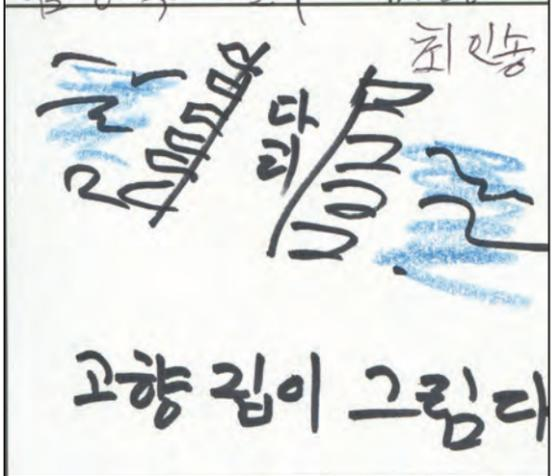 최인송
다
리
고향 집이 그림다